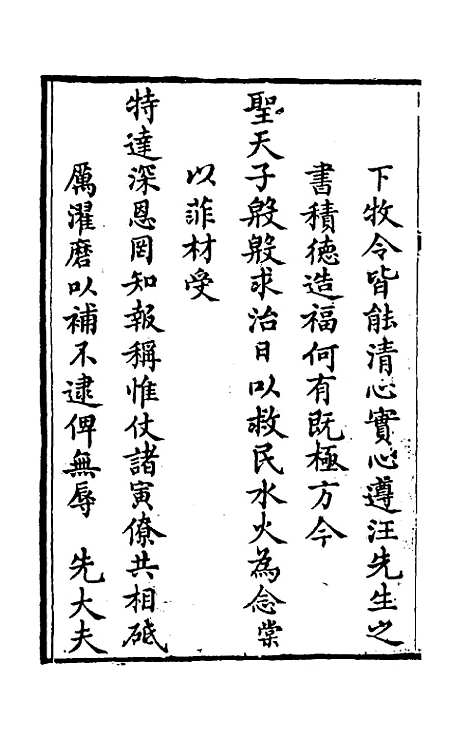 下牧令皆能清心實心遵汪先生之
書積德造福何有既極方今
聖天子殷殷求治日以救民水火為念棠
以菲材受
特達深恩罔知報稱惟仗諸寅僚共相砥
厲濯磨以補不逮俾無辱　先大夫